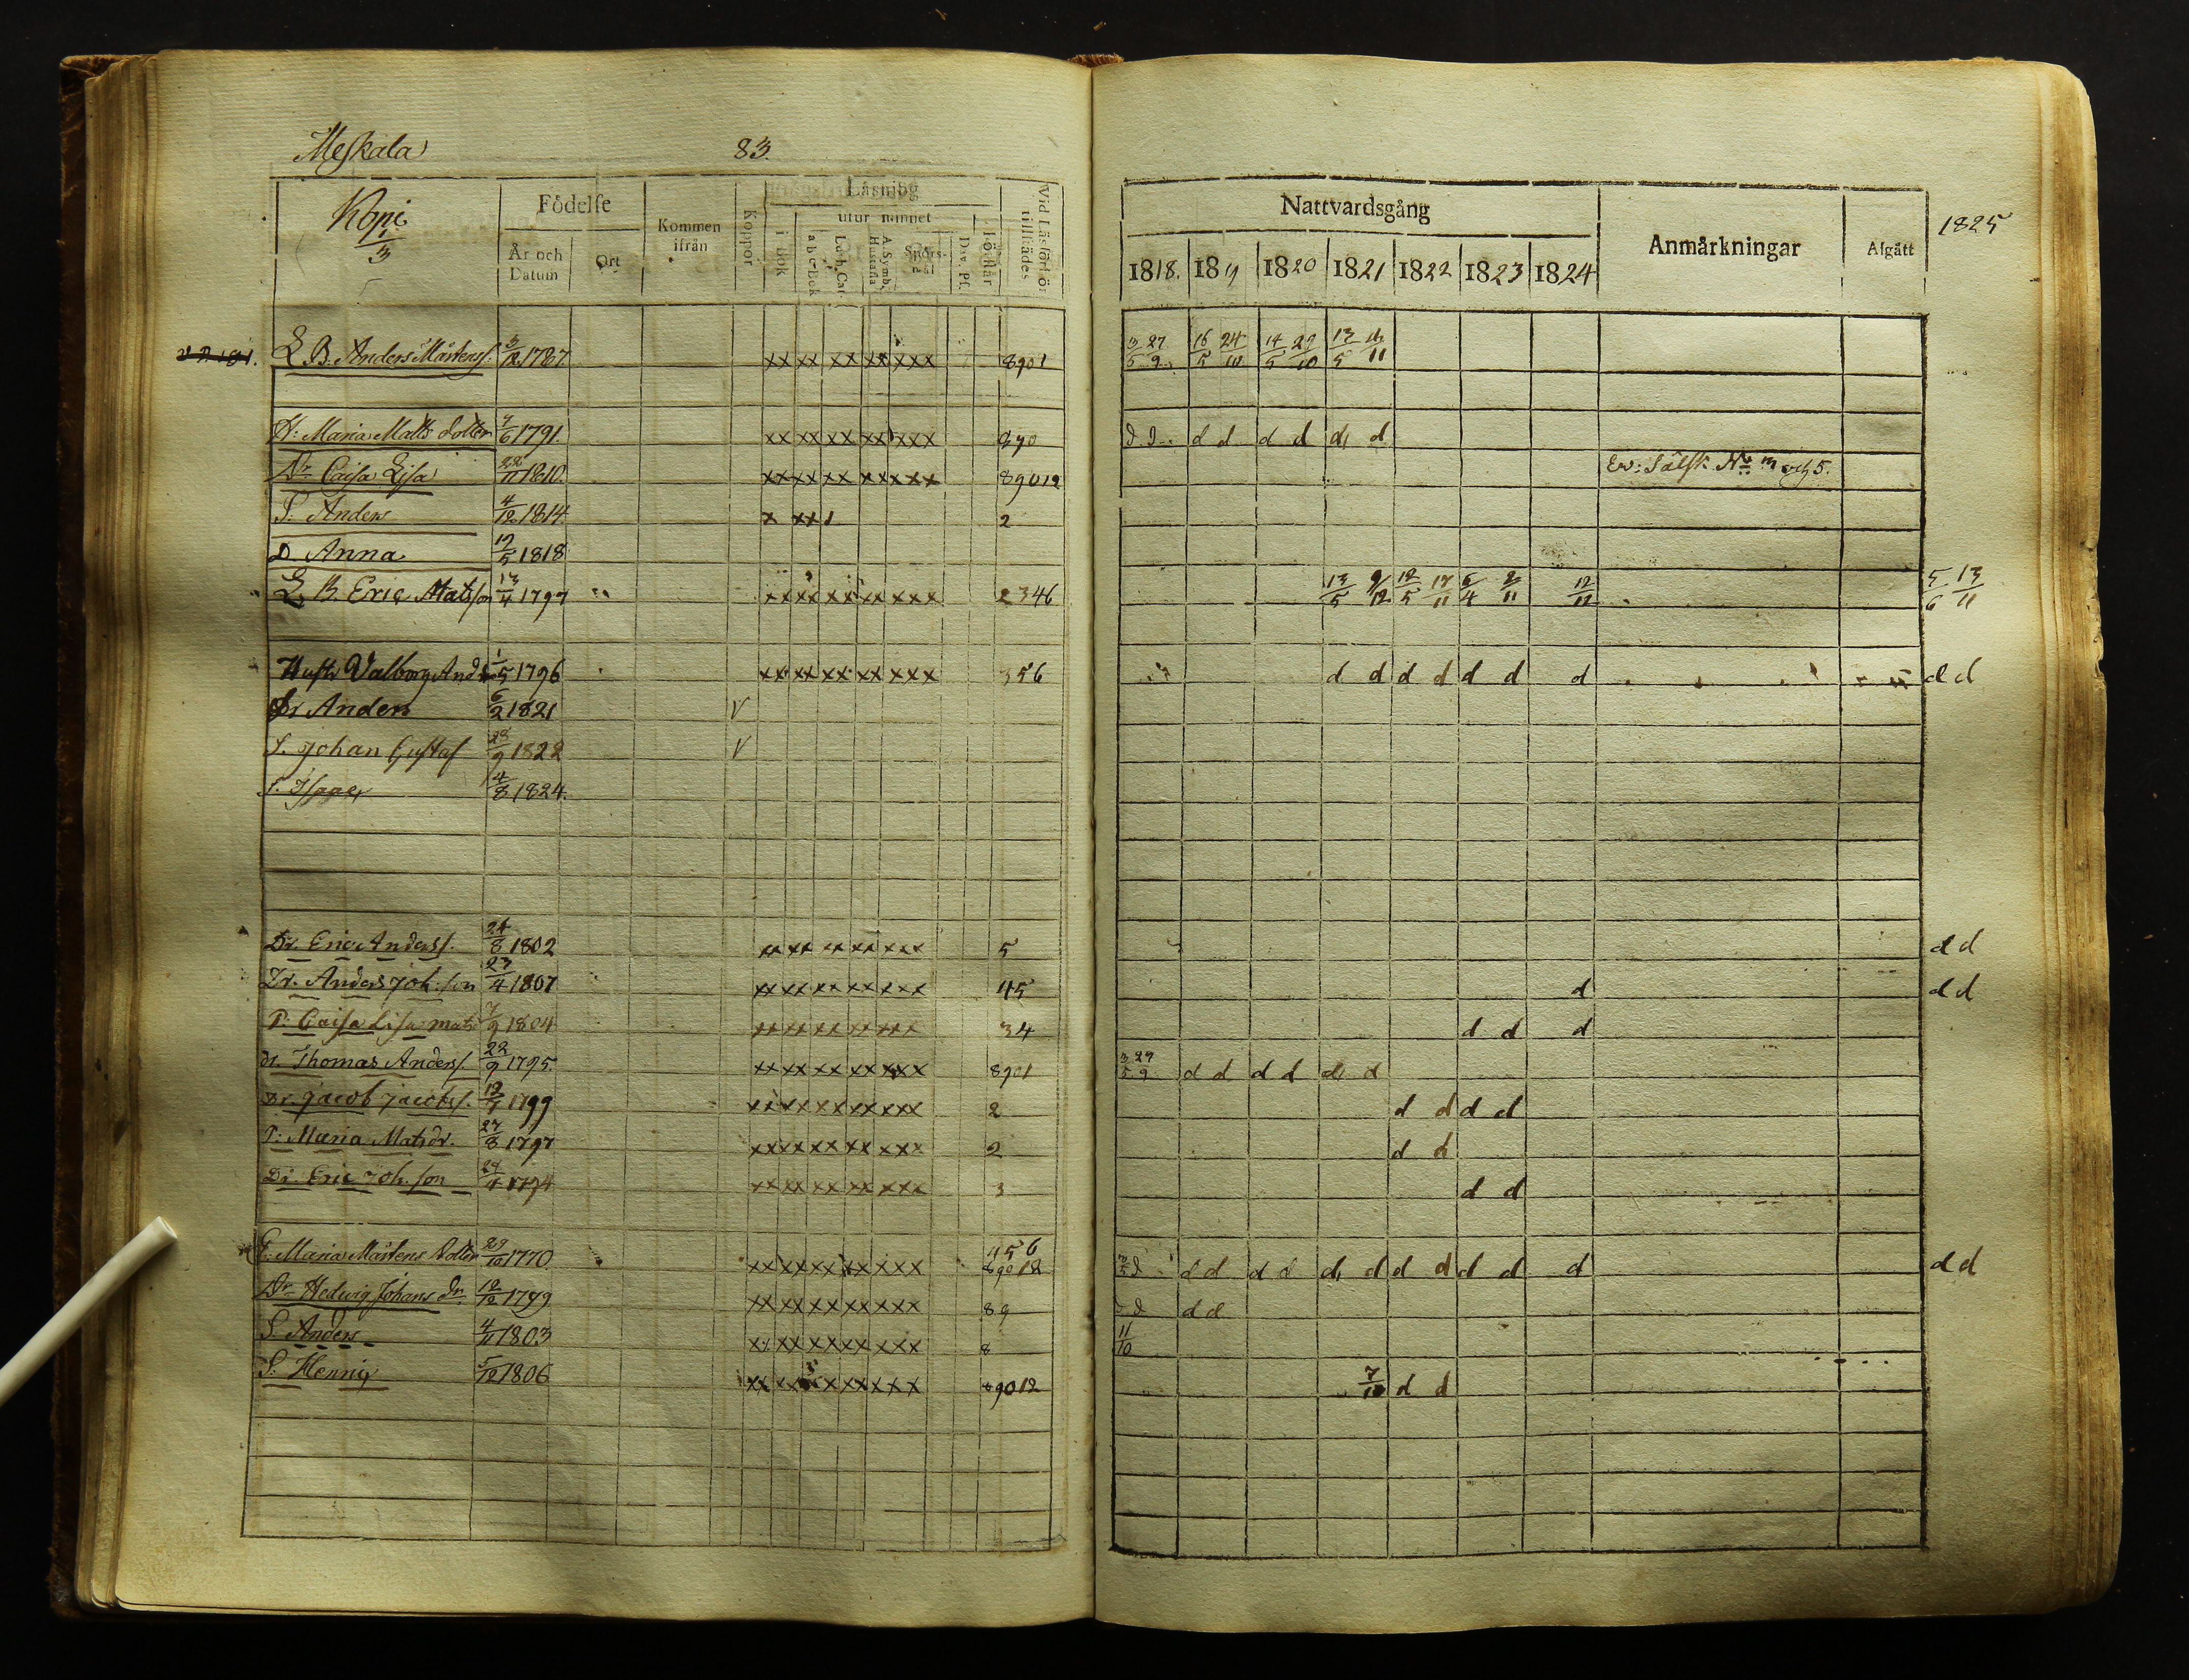 Meskala 83.
Kopi 1/3
Födelse
År och Datum
Ort
Kommen ifrån
Koppor
Läsning
utur minnet
i bok
a b c-bok
Luth. Cat.
A. Symb. Hustafla
Spörs-mål
Dav. Ps.
Förstår
Vid Läsförhör tillstädes
L. B. Anders Mårtenss. 3/12 1787 xx xx xx xx xxx 8901
H: Maria Matts dotter 7/6 1791 xx xx xx xx xxx 890
Dr Caisa Lisa 22/11 1810. xx xx xx xx xxx 89012
S. Anders 4/12 1814. x xx 2
D Anna 12/5 1818
L. B. Eric Matsson 13/4 1797 xx xx xx xx xxx 2346
Hustr Valborg And 1/5 1796 xx xx xx xx xxx 356
Anders 6/2 1821 V
S. Johan Gustaf 28/9 1822 V
S. Isaac 4/8 1824.
Dr. Eric Anderss. 24/8 1802 xx xx xx xx xxx 5
Dr. Anders Joh:son 23/4 1807 xx xx xx xx xxx 45
P: Caisa Lisa mats 7/9 1804 xx xx xx xx xxx 34
dr. Thomas Anderss. 22/9 1795. xx xx xx xx xxx 8901
Dr. Jacob Jacobss. 1799 xx xx xx xx xxx 2
P: Maria Matsdr. 27/8 1797 xx xx xx xx xxx 2
Dr. Eric Joh.son 1794 xx xx xx xx xxx 3
E: Maria Mårtens dotter 29/10 1770. xx xx xx xx xxx 456 89012
Dr Hedvig Johans dr. 12/12 1799 xx xx xx xx xxx 89
S. Anders 4/11 1803 xx xx xx xx xxx 8
S. Henric 5/12 1806 xx xx xx xx xxx 89012
Nattvardsgång
Anmärkningar
Afgått
1825
1818. 1819 1820 1821 1822 1823 1824
3/5 27/9 16/5 24/10 14/5 29/10 13/5 11
d d d d d d d d
Ew: Sälsk: No 3 och 5.
13/5 9/12 12/5 17/11 6/4 2/11 12/12 5/6 13/11
d d d d d d d d d
d d
d d d
d d d
3/5 27/9 d d d d d d
d d d d
d d
d d
3/5 d d d d d d d d d d d d d d
d d d d
11/10
7/10 d d